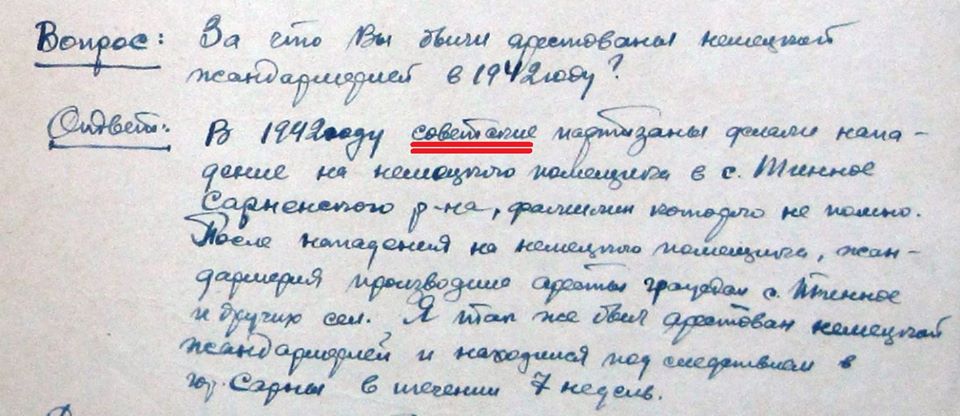 Вопрос: За что Вы были арестованы немецкой
жандармерией в 1942 году?
Ответ: В 1942 году советские партизаны делали напа-
дение на немецкого помещика в с. Тинное
Сарненского р-на, фамилии которого не помню.
После нападения на немецкого помещика, жан-
дармерия производила аресты граждан с. Тинное
и других сел. Я так же был арестован немецкой
жандармерией и находился под следствием в
гор. Сарны в течении 7 недель.